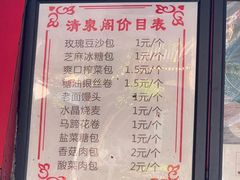 清泉阁价目表
玫瑰豆沙包 1元/个
芝麻冰糖包 1元/个
爽口榨菜包 1.5元/个
糖油银丝卷 1.5元/个
老面馒头 1元/个
水晶烧麦 1元/个
马蹄花卷 1元/个
盐菜糖包 1元/个
香菇肉包 2元/个
酸菜肉包 2元/个